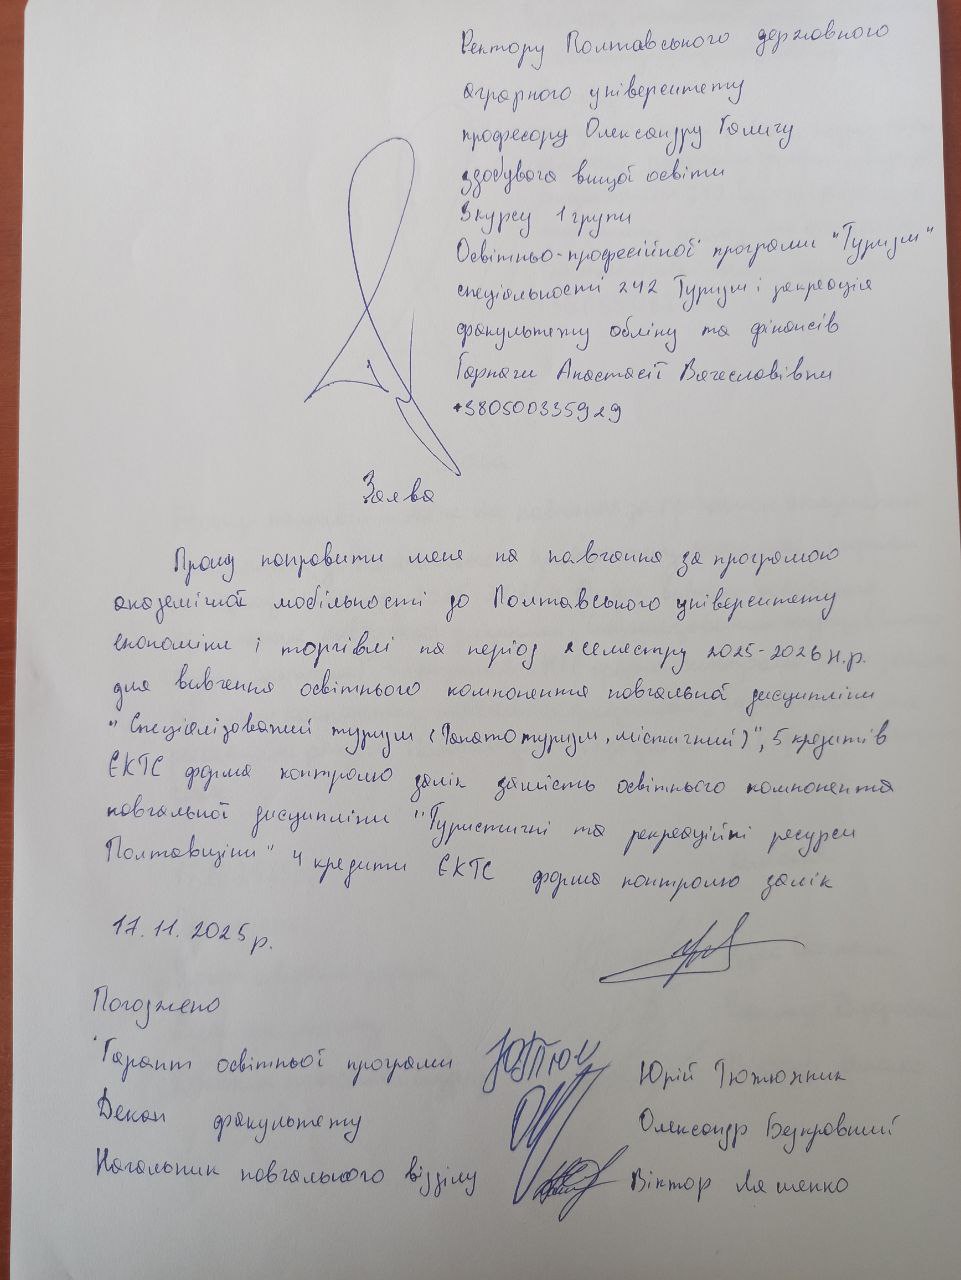 Ректору Полтавського державного
аграрного університету
професору Олександру Галичу
здобувача вищої освіти
3 курсу 1 групи
Освітньо-професійної програми "Туризм"
спеціальності 242 Туризм і рекреація
факультету обліку та фінансів
Гарнаги Анастасії Вячеславівни
+380500335929
Заява
Прошу направити мене на навчання за програмою
академічної мобільності до Полтавського університету
економіки і торгівлі на період 2 семестру 2025-2026 н.р.
для вивчення освітнього компонента навчальної дисципліни
"Спеціалізований туризм (Танатотуризм, містичний)", 5 кредитів
ЄКТС форма контролю залік замість освітнього компонента
навчальної дисципліни "Туристичні та рекреаційні ресурси
Полтавщини" 4 кредити ЄКТС форма контролю залік
17.11.2025 р.
Погоджено
Гарант освітньої програми Юрій Тютюнник
Декан факультету Олександр Безкровний
Начальник навчального відділу Віктор Ляшенко